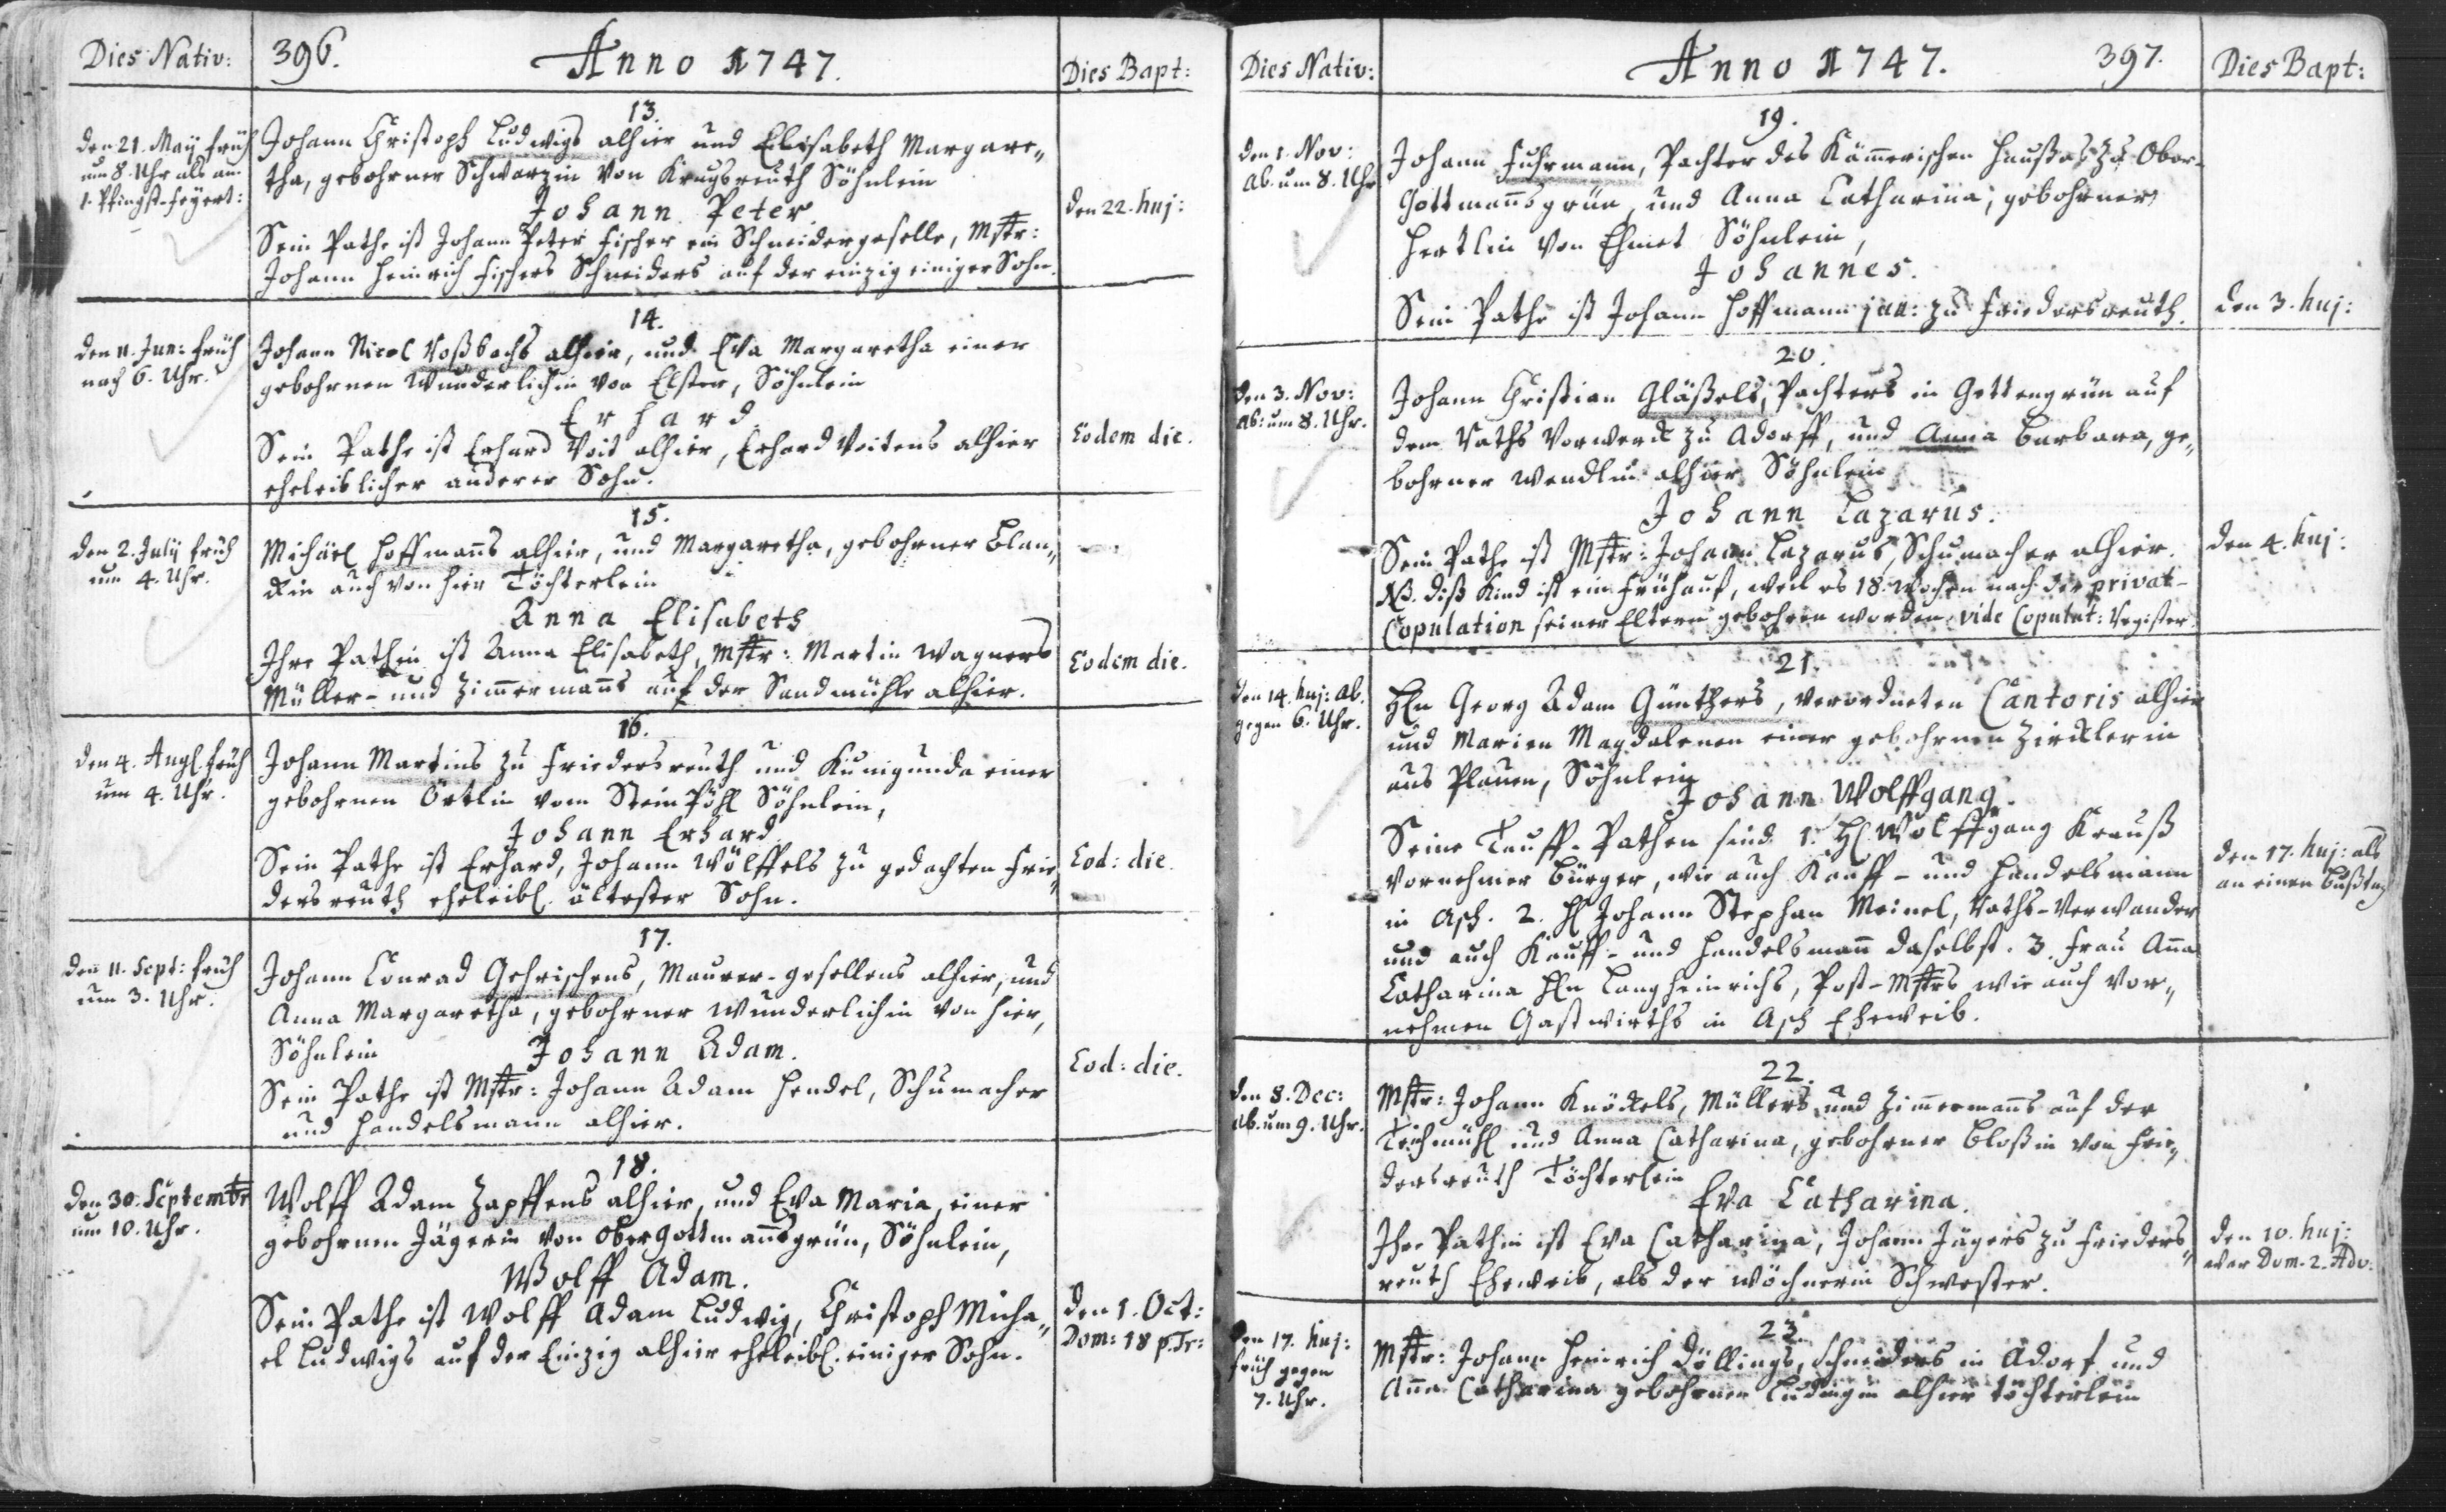 Dies Nativ:
396.
Anno 1747.
Dies Bapt:
13.
den 21. Maÿ früh
um 8. Uhr als am
1. Pfingst-feyert:
Johann Christoph Ludwigs alhier und Elisabeth Margare„
tha, gebohrner Schwarzin von Krugsreuth Söhnlein
Johann Peter.
Sein Pathe ist Johann Peter Fischer ein Schneidergeselle, Mstr:
Johann Heinrich Fischers Schneiders auf der einzig einiger Sohn.
den 22. huj:
14.
den 11. Jun: früh
nach 6. Uhr.
Johann Nicol Voßbachs alhier, und Eva Margaretha einer
gebohrnen Wunderlichin von Elster, Söhnlein
Erhard
Sein Pathe ist Erhard Voit alhier, Erhard Voitens alhier
eheleiblicher anderer Sohn.
Eodem die.
15.
den 2. July früh
um 4. Uhr.
Michäel Hoffmanns alhier, und Margaretha, gebohrner Blan„
ckin auch von hier Töchterlein
Anna Elisabeth
Ihre Pathin ist Anna Elisabeth, Mstr: Martin Wagners
Müller- und Zimmermanns auf der Sandmühle alhier.
Eodem die.
16.
den 4. Aug. früh
um 4. Uhr.
Johann Martins zu Friedersreuth und Kunigunda einer
gebohrnen Örtlin vom SteinPöhl Söhnlein,
Johann Erhard
Sein Pathe ist Erhard, Johann Wölffels zu gedachten Frie„
dersreuth eheleibl. ältester Sohn.
Eod: die.
17.
den 11. Sept: früh
um 3. Uhr.
Johann Conrad Gehrischens, Maurer-gesellens alhier, und
Anna Margaretha, gebohrner Wunderlichin von hier,
Söhnlein Johann Adam.
Sein Pathe ist Mstr: Johann Adam Hendel, Schumacher
und Handelsmann alhier.
Eod: die.
18.
den 30. Septembr
um 10. Uhr.
Wolff Adam Zapffens alhier, und Eva Maria, einer
gebohrnen Jägerin von Obergottmannsgrün, Söhnlein,
Wolff Adam.
Sein Pathe ist Wolff Adam Ludwig, Christoph Micha„
el Ludwigs auf der Einzig alhier eheleibl. einiger Sohn.
den 1. Oct:
Dom: 18 p. Tr:
Dies Nativ:
Anno 1747.
397.
Dies Bapt:
19.
den 1. Nov:
Ab. um 8. Uhr
Johann Fuhrmann, Pachter des Kämmerischen Haußes zu Ober-
Gottmannsgrün, und Anna Catharina, gebohrner
Hertlin von Söhnlein,
Johannes.
Sein Pathe ist Johann Hoffmann jun: zu Friedersreuth.
den 3. huj:
20.
den 3. Nov:
Ab: um 8. Uhr.
Johann Christian Gläßels, Pachters in Gettengrün auf
dem Raths Vorwerck zu Adorff, und Anna Barbara, ge„
bohrner Wendlin alhier Söhnlein
Johann Lazarus.
Sein Pathe ist Mstr: Johann Lazarus, Schumacher alhier.
NB. diß Kind ist ein Frühauf, weil es 18. Wochen nach der privat-
Copulation seiner Eltern gebohren worden, vide Copulat: Register
den 4. huj:
21.
den 14. huj: ab.
gegen 6. Uhr.
Hln Georg Adam Günthers, verordneten Cantoris alhier
und Marien Magdalenen einer gebohrnen Zircklerin
aus Plauen, Söhnlein
Johann Wolffgang.
Seine Tauff-Pathen sind 1. Hl. Wolffgang Krauß
vornehmer Bürger, wie auch Kauff- und Handelsmann
in Asch. 2. Hl Johann Stephan Meinel, Raths-Verwander
und auch Kauff- und Handelsmann daselbst. 3. Frau Anna
Catharina Hln Langheinrichs, Post-Mstrs wie auch vor„
nehmen Gastwirths in Asch Eheweib.
den 17. huj: als
an einen Bußtag
22.
den 8. Dec:
Ab. um 9. Uhr.
Mstr: Johann Knöckels, Müllers und Zimmermanns auf der
Teichmühl und Anna Catharina, gebohrner Bloßin von Frie„
dersreuth Töchterlein
Eva Catharina.
Ihre Pathin ist Eva Catharina, Johann Jägers zu Frieders„
reuth Eheweib, als der Wöchnerin Schwester.
den 10. huj:
war Dom. 2. Adv:
23.
den 17. huj:
früh gegen
7. Uhr.
Mstr: Johann Heinrich Döllings, Schneiders in Adorf und
Anna Catharina gebohrner Ludwigin alhier Töchterlein